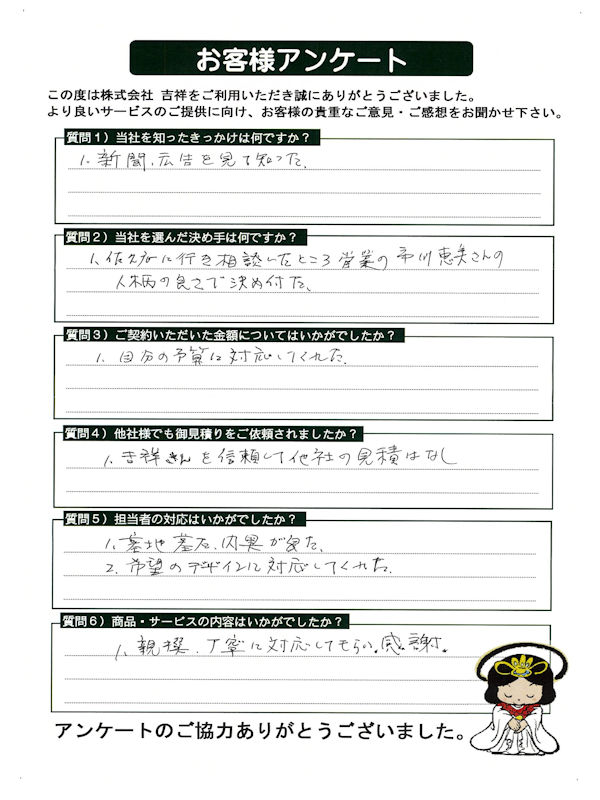 お客様アンケート
この度は株式会社 吉祥をご利用いただき誠にありがとうございました。
より良いサービスのご提供に向け、お客様の貴重なご意見・ご感想をお聞かせ下さい。
質問1）当社を知ったきっかけは何ですか？
1. 新聞、広告を見て知った、
質問2）当社を選んだ決め手は何ですか？
1. に行き相談したところ営業の市川恵美さんの
人柄の良さで決め付た、
質問3）ご契約いただいた金額についてはいかがでしたか？
1. 自分の予算に対応してくれた.
質問4）他社様でも御見積りをご依頼されましたか？
1. 吉祥さんを信頼して他社の見積はなし
質問5）担当者の対応はいかがでしたか？
1. 墓地墓石、内
2. 希望のデザインに対応してくれた.
質問6）商品・サービスの内容はいかがでしたか？
1. 親 、丁寧に対応してもらい。感謝。
アンケートのご協力ありがとうございました。